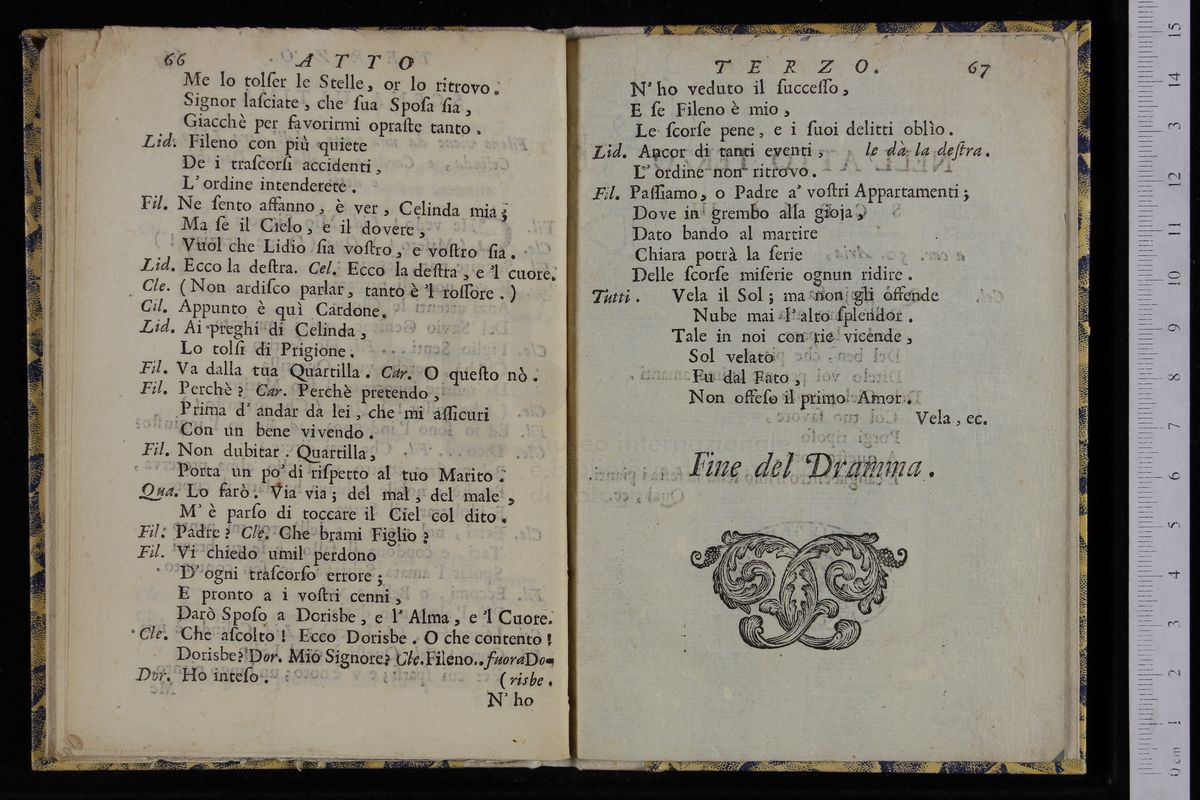 66 ATTO
Me lo tolſer le Stelle, or lo ritrovo.
Signor laſciate, che ſua Spoſa ſia,
Giacchè per favorirmi opraſte tanto.
Lid. Fileno con più quiete
De i traſcorſi accidenti,
L'ordine intenderete.
Fil. Ne ſento affanno, è ver, Celinda mia;
Ma ſe il Cielo, e il dovere,
Vuol che Lidio ſia voſtro, e voſtro ſia.
Lid. Ecco la deſtra. Cel. Ecco la deſtra, e 'l cuore.
Cle. (Non ardiſco parlar, tanto è 'l roſſore.)
Cil. Appunto è quì Cardone.
Lid. Ai preghi di Celinda,
Lo tolſi di Prigione.
Fil. Va dalla tua Quartilla. Car. O queſto nò.
Fil. Perchè? Car. Perchè pretendo,
Prima d'andar da lei, che mi aſſicuri
Con un bene vivendo.
Fil. Non dubitar. Quartilla,
Porta un po' di riſpetto al tuo Marito.
Qua. Lo farò. Via via; del mal, del male,
M'è parſo di toccare il Ciel col dito.
Fil. Padre? Cle. Che brami Figlio?
Fil. Vi chiedo umil perdono
D'ogni traſcorſo errore;
E pronto a i voſtri cenni,
Darò Spoſo a Dorisbe, e l'Alma, e 'l Cuore.
Cle. Che aſcolto! Ecco Dorisbe. O che contento!
Dorisbe? Dor. Mio Signore? Cle. Fileno.. fuora Do-
Dor. Ho inteſo. (risbe.
N'ho
TERZO. 67
N'ho veduto il ſucceſſo,
E ſe Fileno è mio,
Le ſcorſe pene, e i ſuoi delitti oblìo.
Lid. Ancor di tanti eventi, le dà la deſtra.
L'ordine non ritrovo.
Fil. Paſſiamo, o Padre a' voſtri Appartamenti;
Dove in grembo alla gioja,
Dato bando al martire
Chiara potrà la ſerie
Delle ſcorſe miſerie ognun ridire.
Tutti. Vela il Sol; ma non gli offende
Nube mai l'alto ſplendor.
Tale in noi con rie vicende,
Sol velato
Fu dal Fato,
Non offeſo il primo Amor.
Vela, ec.
Fine del Dramma.